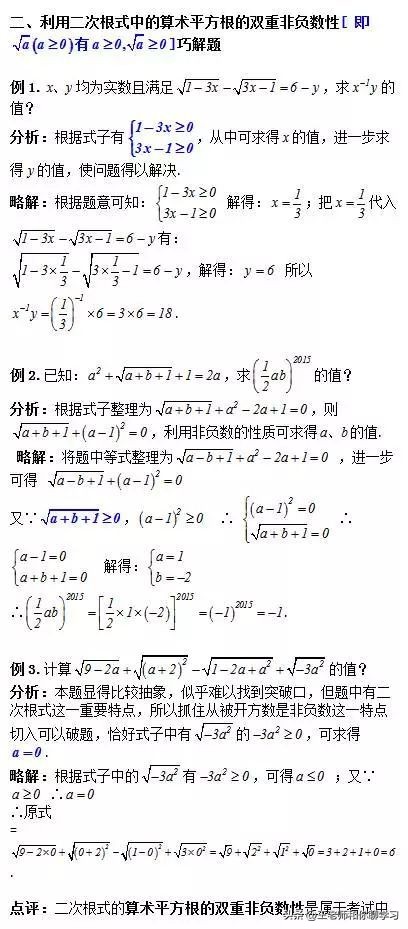 二、利用二次根式中的算术平方根的双重非负数性[ 即
√a(a≥0)有a≥0,√a≥0]巧解题
例1. x、y 均为实数且满足√(1-3x)-√(3x-1)=6-y，求x⁻¹y的
值?
分析：根据式子有{1-3x≥0 3x-1≥0，从中可求得x的值，进一步求
得y的值，使问题得以解决.
略解：根据题意可知：{1-3x≥0 3x-1≥0 解得：x=1/3；把x=1/3代入
√(1-3x)-√(3x-1)=6-y有：
√(1-3×1/3)-√(3×1/3-1)=6-y，解得：y=6 所以
x⁻¹y=(1/3)⁻¹×6=3×6=18.
例2.已知：a²+√(a+b+1)+1=2a，求(1/2ab)²⁰¹⁵的值?
分析：根据式子整理为√(a+b+1)+a²-2a+1=0，则
√(a+b+1)+(a-1)²=0，利用非负数的性质可求得a、b的值.
略解：将题中等式整理为√(a-b+1)+a²-2a+1=0 ，进一步
可得 √(a-b+1)+(a-1)²=0
又∵√(a+b+1)≥0，(a-1)²≥0 ∴{(a-1)²=0 √(a+b+1)=0 ∴
{a-1=0 a+b+1=0 解得：{a=1 b=-2
∴(1/2ab)²⁰¹⁵=[1/2×1×(-2)]²⁰¹⁵=(-1)²⁰¹⁵=-1.
例3.计算√(9-2a)+√((a+2)²)-√(1-2a+a²)+√(-3a²)的值?
分析：本题显得比较抽象，似乎难以找到突破口，但题中有二
次根式这一重要特点，所以抓住从被开方数是非负数这一特点
切入可以破题，恰好式子中有√(-3a²)的-3a²≥0，可求得
a=0.
略解：根据式子中的√(-3a²)有-3a²≥0，可得a≤0 ；又∵
a≥0 ∴a=0
∴原式
=
√(9-2×0)+√((0+2)²)-√((1-0)²)+√(3×0²)=√9+√2²+√1²+√0=3+2+1+0=6
.
点评：二次根式的算术平方根的双重非负数性是属于考试中